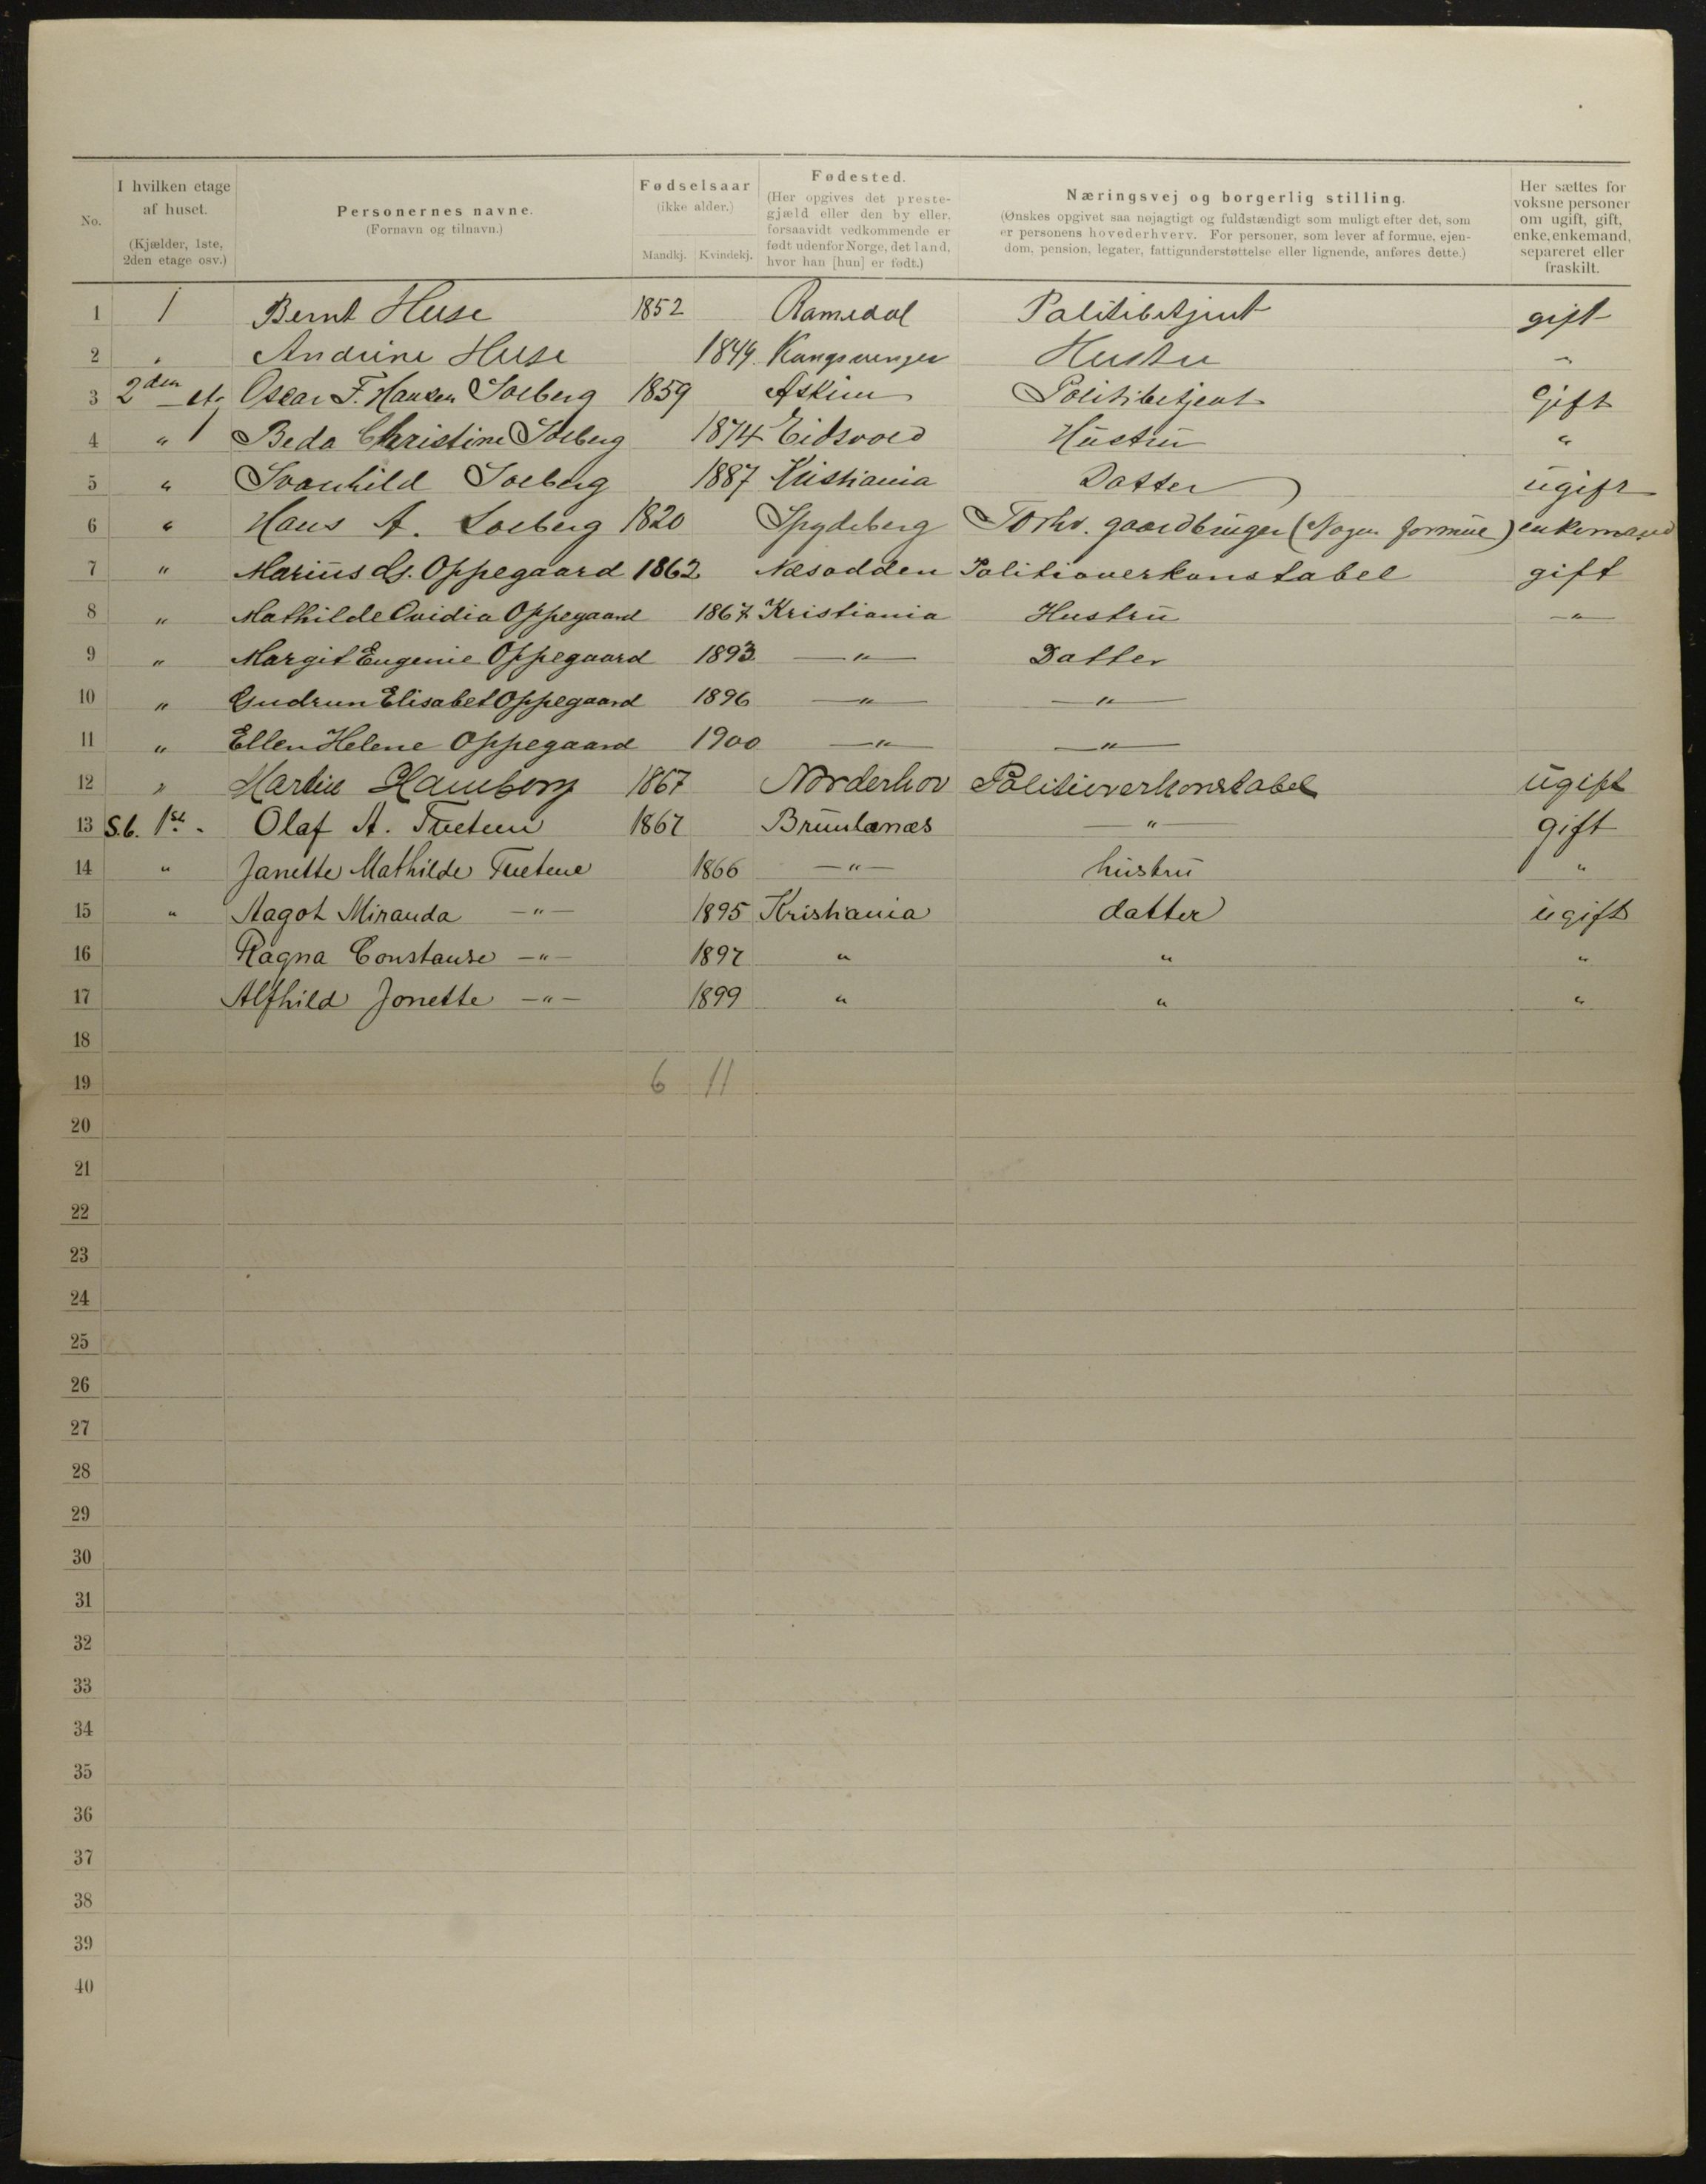 No. I hvilken etage af huset. (Kjælder, 1ste, 2den etage osv.) Personernes navne. (Fornavn og tilnavn.) Fødselsaar (ikke alder.) Mandkj. Kvindekj. Fødested. (Her opgives det prestegjæld eller den by eller, forsaavidt vedkommende er født udenfor Norge, det land, hvor han [hun] er født.) Næringsvej og borgerlig stilling. (Ønskes opgivet saa nøjagtigt og fuldstændigt som muligt efter det, som er personens hovederhverv. For personer, som lever af formue, ejendom, pension, legater, fattigunderstøttelse eller lignende, anføres dette.) Her sættes for voksne personer om ugift, gift, enke, enkemand, separeret eller fraskilt.
1 1 Bernt Huse 1852 Ramsdal Politibetjent gift
2 " Andrine Huse 1849 Kongsvinger Hustru "
3 2den et. Oscar F. Hansen Solberg 1859 Askim Politibetjent Gift
4 " Beda Christine Solberg 1874 Eidsvold Hustru "
5 " Svanhild Solberg 1887 Kristiania Datter ugift
6 " Hans A. Solberg 1820 Spydeberg Forhv. gaardbruger (Nogen formue) enkemand
7 " Marius Oppegaard 1862 Næsodden Politioverkonstabel gift
8 " Mathilde Ovidia Oppegaard 1867 Kristiania Hustru "
9 " Margit Eugenie Oppegaard 1893 " Datter
10 " Gudrun Elisabet Oppegaard 1896 " "
11 " Ellen Helene Oppegaard 1900 " "
12 " Martin Hamborg 1867 Norderhov Politioverkonstabel ugift
13 S.b. 1st. Olaf A. Tueteen 1867 Brunlanæs " gift
14 " Janette Mathilde 1866 " hustru "
15 " Aagot Miranda " 1895 Kristiania datter ugift
16 Ragna Constanse " 1897 " " "
17 Alfhild Jonette " 1899 " " "
18
19 6 11
20
21
22
23
24
25
26
27
28
29
30
31
32
33
34
35
36
37
38
39
40